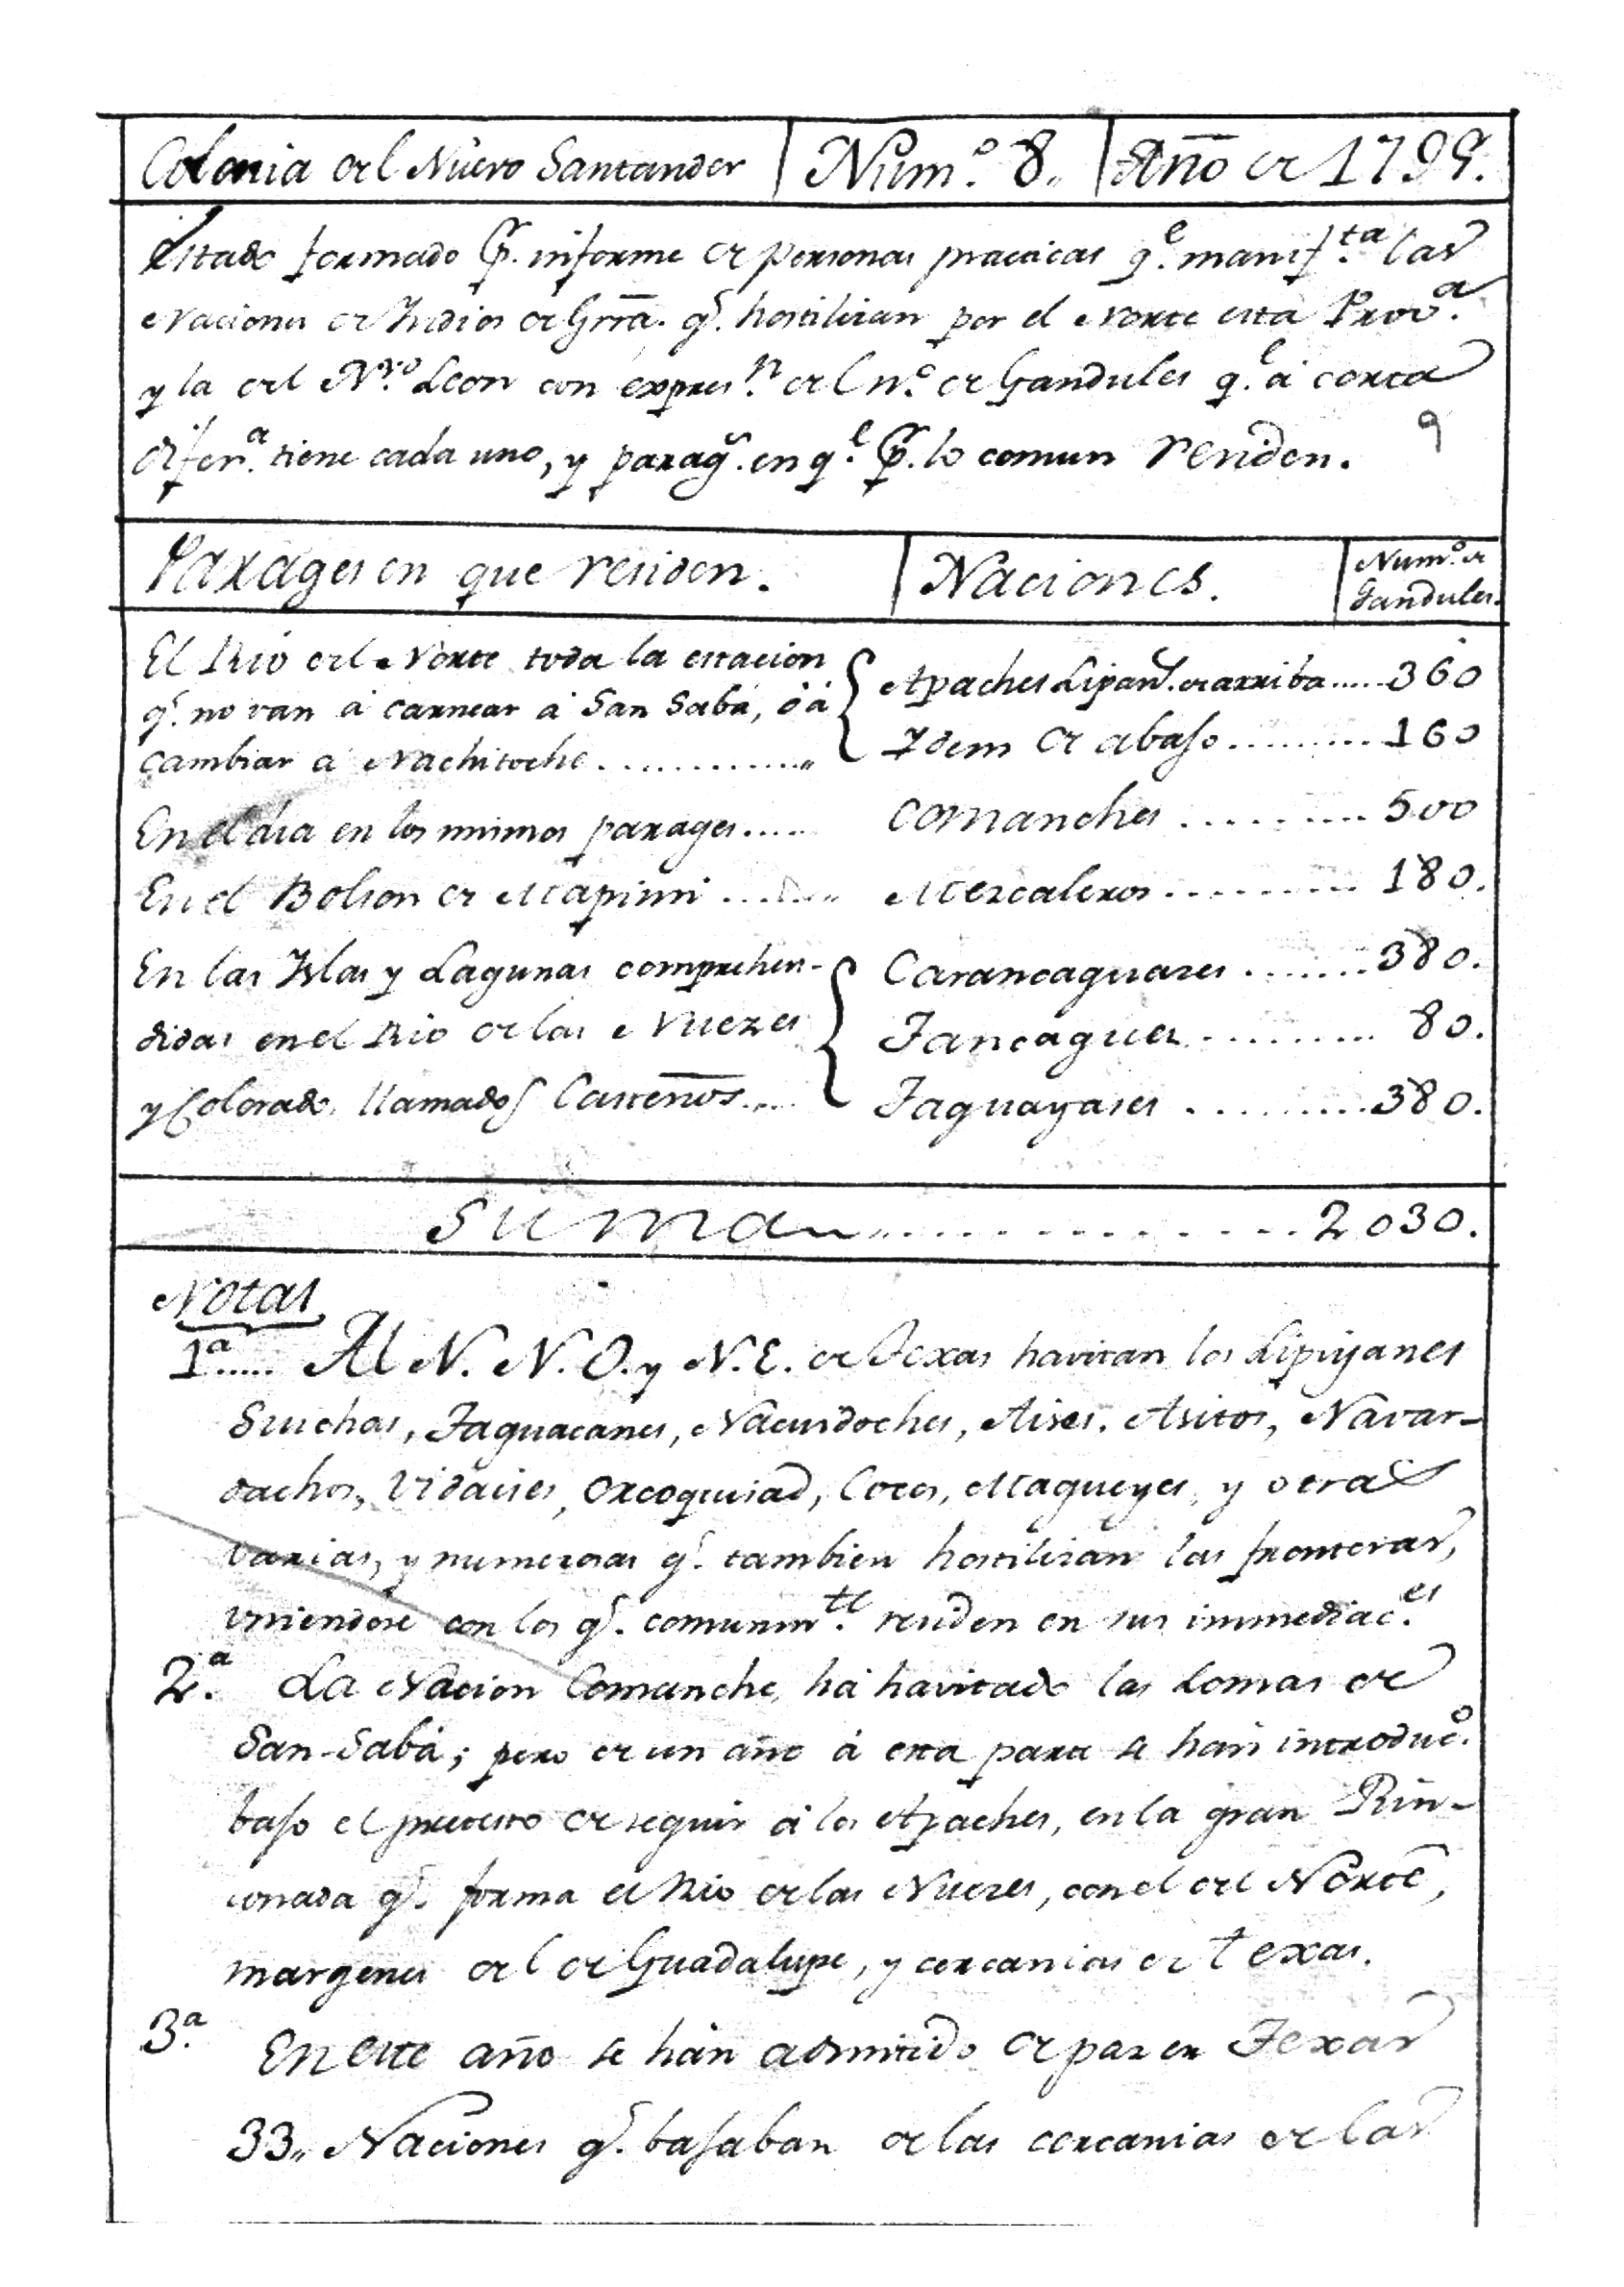 Colonia del Nuevo Santander | Num.º 8. | Año de 1799.
Estado formado p.r informe de personas practicas q.e manif.ta las
Naciones de Indios de Grrã. q.e hostilizan por el Norte esta Prov.a
y la del N.vo Leon con expres.n del n.º de Gandules q.e á corta
difer.a tiene cada uno, y parag.s en q.e p.r lo comun residen.
9
Parages en que residen. | Naciones. | Num.º de
Gandules.
El Rio del Norte toda la estacion
q.e no van á carnear á San Sabá, ó á
cambiar á Nachitoche ............"
Apaches Lipan.s de arriba ..... 360
Idem de abajo ......... 160
En el dia en los mismos parages ..... Comanches ......... 500
En el Bolson de Mapimi ......" Mezcaleros ......... 180.
En las Yslas y Lagunas comprehen-
didas en el Rio de las Nuezes
y Colorado, llamados Casteños.....
Carancaguases ....... 380.
Tancagues ......... 80.
Taguayases ......... 380.
Suman ............. 2030.
Notas
1.a ..... Al N. N. O. y N. E. de Texas havitan los Lipiyanes
Suichas, Taguacanes, Nacuidoches, Aises. Asitos, Navar-
dachos, Vidaises, Orcoquisad, Cocos, Magueyes, y otras
varias, y numerosas q.e tambien hostilizan las fronteras,
uniendose con los q.e comunm.te residen en sus immediac.es
2.a La Nacion Comanche, há havitado las Lomas de
San-Sabá; pero de un año á esta parte se hán introduc.º
bajo el pretesto de seguir á los Apaches, en la gran Rin-
conada q.e forma el Rio de las Nuezes, con el del Norte,
margenes del de Guadalupe, y cercanias de Texas.
3.a En este año se hán admitido de paz en Texas
33,, Naciones q.e bajaban de las cercanias de las